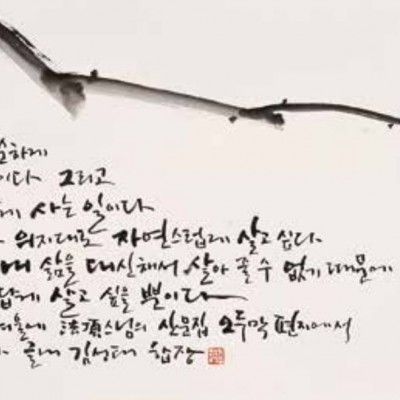 순하게
이다 그리고
게 사는 일이다
의지대로 자연스럽게 살고 싶다
내 삶을 대신해서 살아 줄 수 없기 때문에
답게 살고 싶을 뿐이다
겨울에 法頂스님의 산문집 오두막 편지에서
김성태 합장